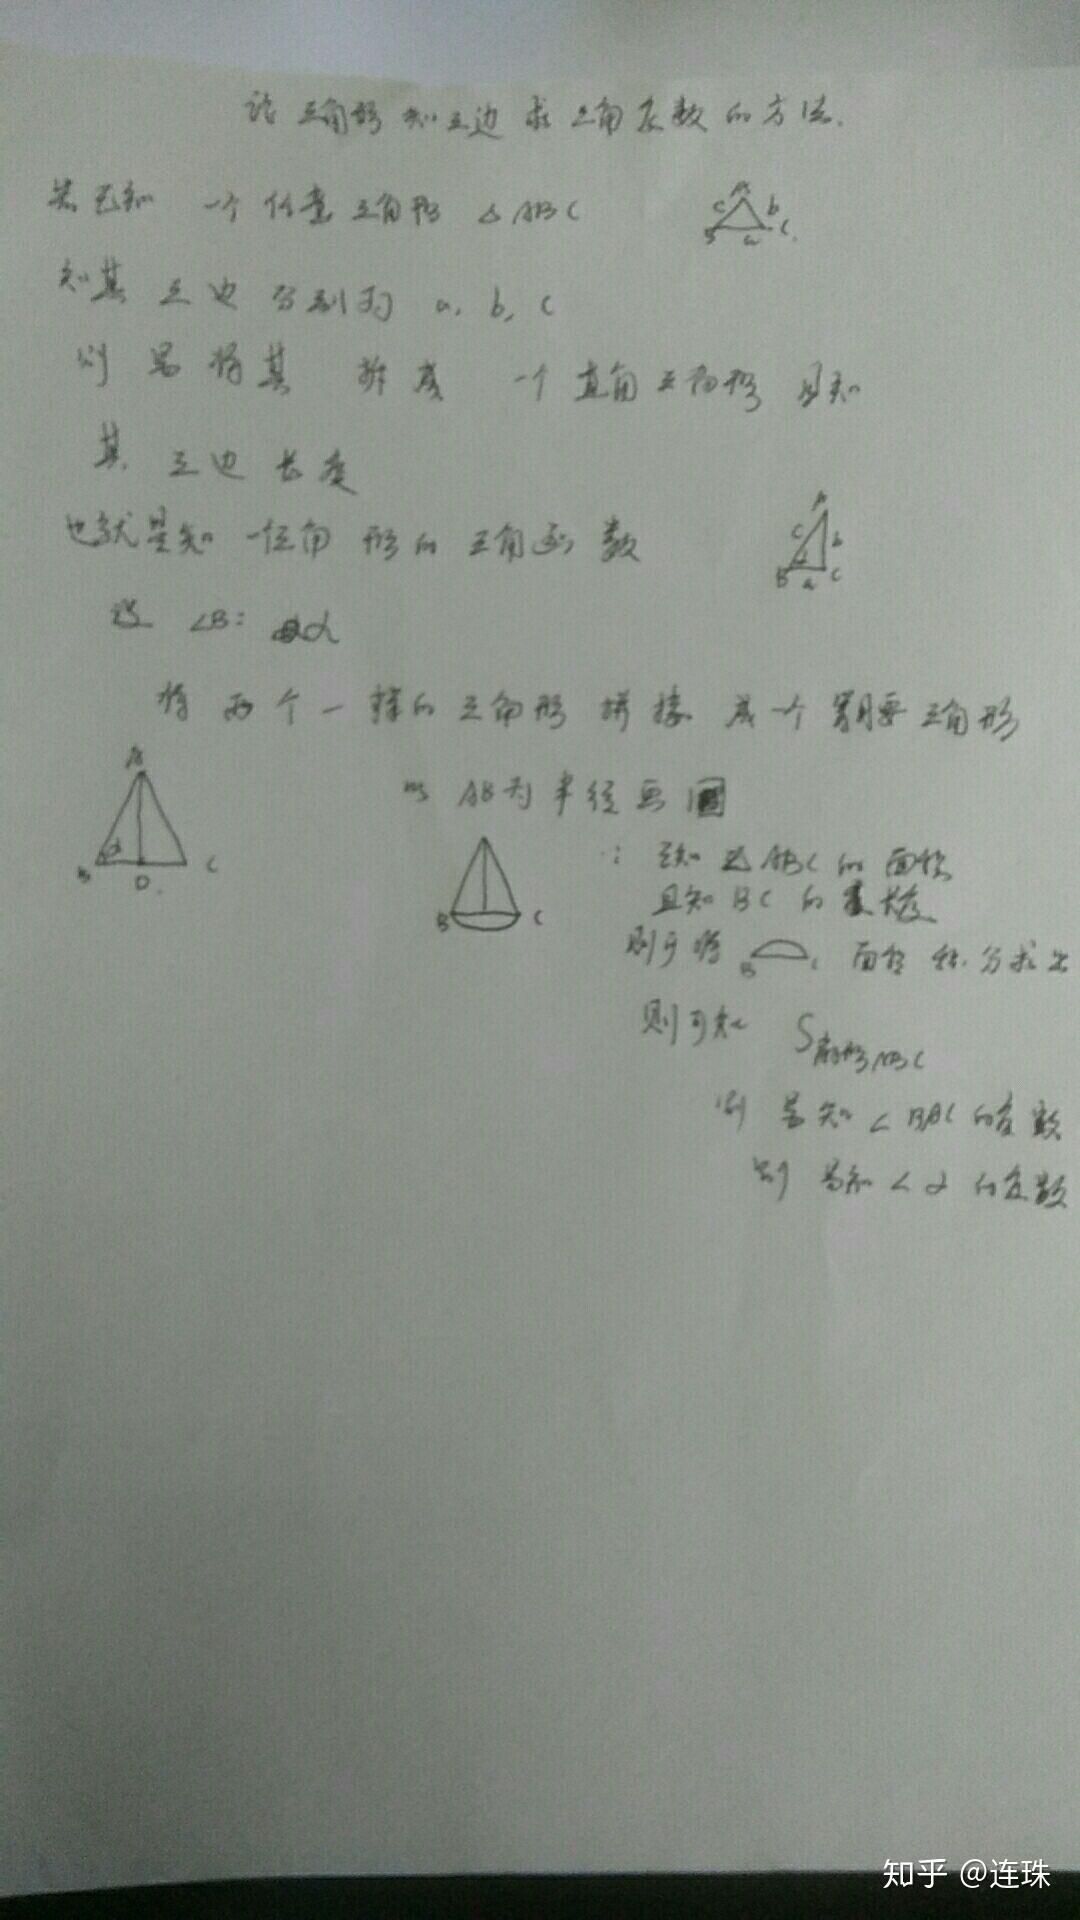 论三角形知三边求三角度数的方法.
若已知 一个任意三角形 △ABC
A
c b
B a C
知其三边分别为 a, b, c
则易将其 拆成 一个直角三角形 且知
其三边长度
也就是知一任角形的三角函数
A
c b
α
B a C
设 ∠B: α
将两个一样的三角形拼接成一个等腰三角形
A
α
B D C
以AB为半径画圆
B C
∵ 已知 △ABC的面积
且知BC的长度
则可将 B C 面积 积分求出
则可知 S扇形ABC
则易知∠BAC的度数
则易知∠α的度数
知乎 @连珠